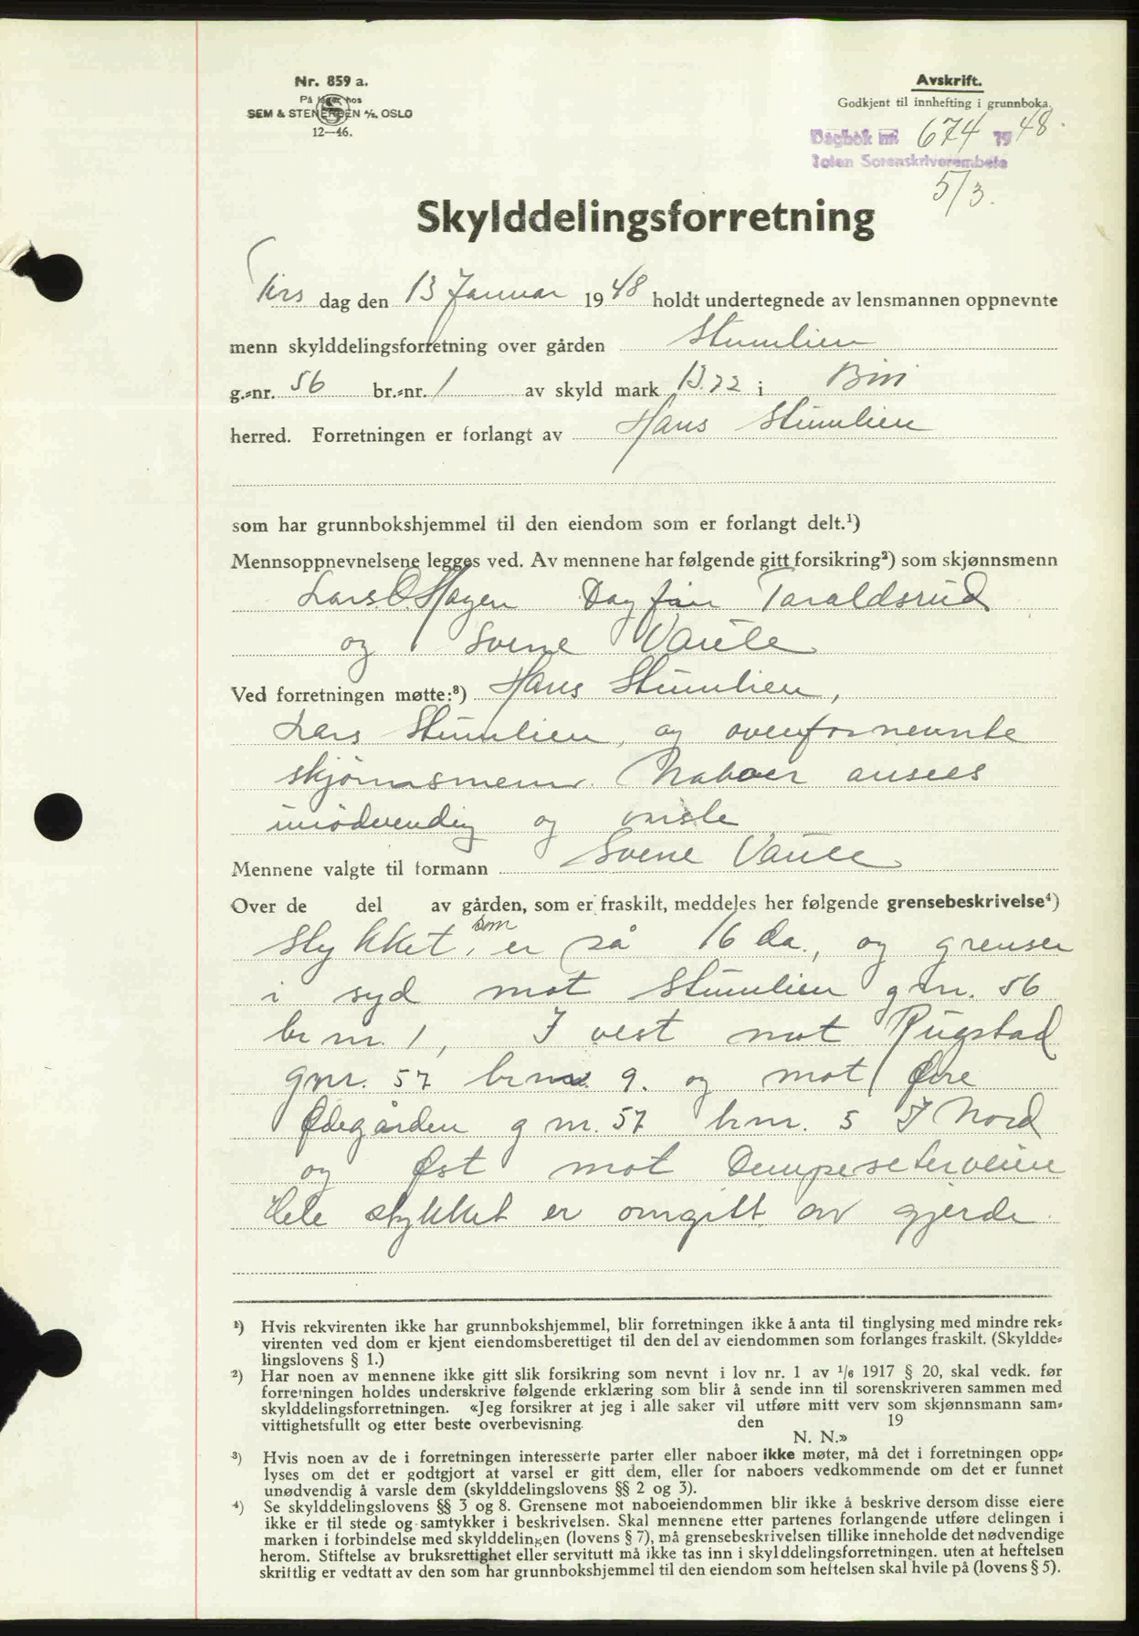 Nr. 859 a.
På lager hos
SEM & STENERSEN A/S, OSLO
12—46.
Avskrift.
Godkjent til innhefting i grunnboka.
Dagbok nr. 674 1948.
Toten Sorenskriverembete
5/3.
Skylddelingsforretning
Tirs dag den 13 Januar 1948 holdt undertegnede av lensmannen oppnevnte
menn skylddelingsforretning over gården Stumlien
g.-nr. 56 br.-nr. 1 av skyld mark 13.22 i Biri
herred. Forretningen er forlangt av Hans Stumlien
som har grunnbokshjemmel til den eiendom som er forlangt delt.¹)
Mennsoppnevnelsene legges ved. Av mennene har følgende gitt forsikring²) som skjønnsmenn
Lars O. Hagen Dagfin Taraldsrud
og Svene
Ved forretningen møtte:³) Hans Stumlien,
Lars Stumlien, og ovenfornevnte
skjønnsmenn. Naboer ansees
unødvendig og
Mennene valgte til formann Svene
Over de del av gården, som er fraskilt, meddeles her følgende grensebeskrivelse⁴)
Stykket, som er på 16 da., og grenser
i syd mot Stumlien gnr. 56
br nr. 1, I vest mot Rugstad
gnr. 57 brnr. 9. og mot Øvre
Ødegården gnr. 57 brnr. 5 I Nord
og Øst mot
Hele stykket er omgitt av gjerde
¹) Hvis rekvirenten ikke har grunnbokshjemmel, blir forretningen ikke å anta til tinglysing med mindre rek-
virenten ved dom er kjent eiendomsberettiget til den del av eiendommen som forlanges fraskilt. (Skyldde-
lingslovens § 1.)
²) Har noen av mennene ikke gitt slik forsikring som nevnt i lov nr. 1 av 1/6 1917 § 20, skal vedk. før
forretningen holdes underskrive følgende erklæring som blir å sende inn til sorenskriveren sammen med
skylddelingsforretningen. «Jeg forsikrer at jeg i alle saker vil utføre mitt verv som skjønnsmann sam-
vittighetsfullt og etter beste overbevisning. den 19
N. N.»
³) Hvis noen av de i forretningen interesserte parter eller naboer ikke møter, må det i forretningen opp-
lyses om det er godtgjort at varsel er gitt dem, eller for naboers vedkommende om det er funnet
unødvendig å varsle dem (skylddelingslovens §§ 2 og 3).
⁴) Se skylddelingslovens §§ 3 og 8. Grensene mot naboeiendommen blir ikke å beskrive dersom disse eiere
ikke er til stede og samtykker i beskrivelsen. Skal mennene etter partenes forlangende utføre delingen i
marken i forbindelse med skylddelingen (lovens § 7), må grensebeskrivelsen tillike inneholde det nødvendige
herom. Stiftelse av bruksrettighet eller servitutt må ikke tas inn i skylddelingsforretningen. uten at heftelsen
skriftlig er vedtatt av den som har grunnbokshjemmel til den eiendom som heftelsen skal hvile på (lovens § 5).